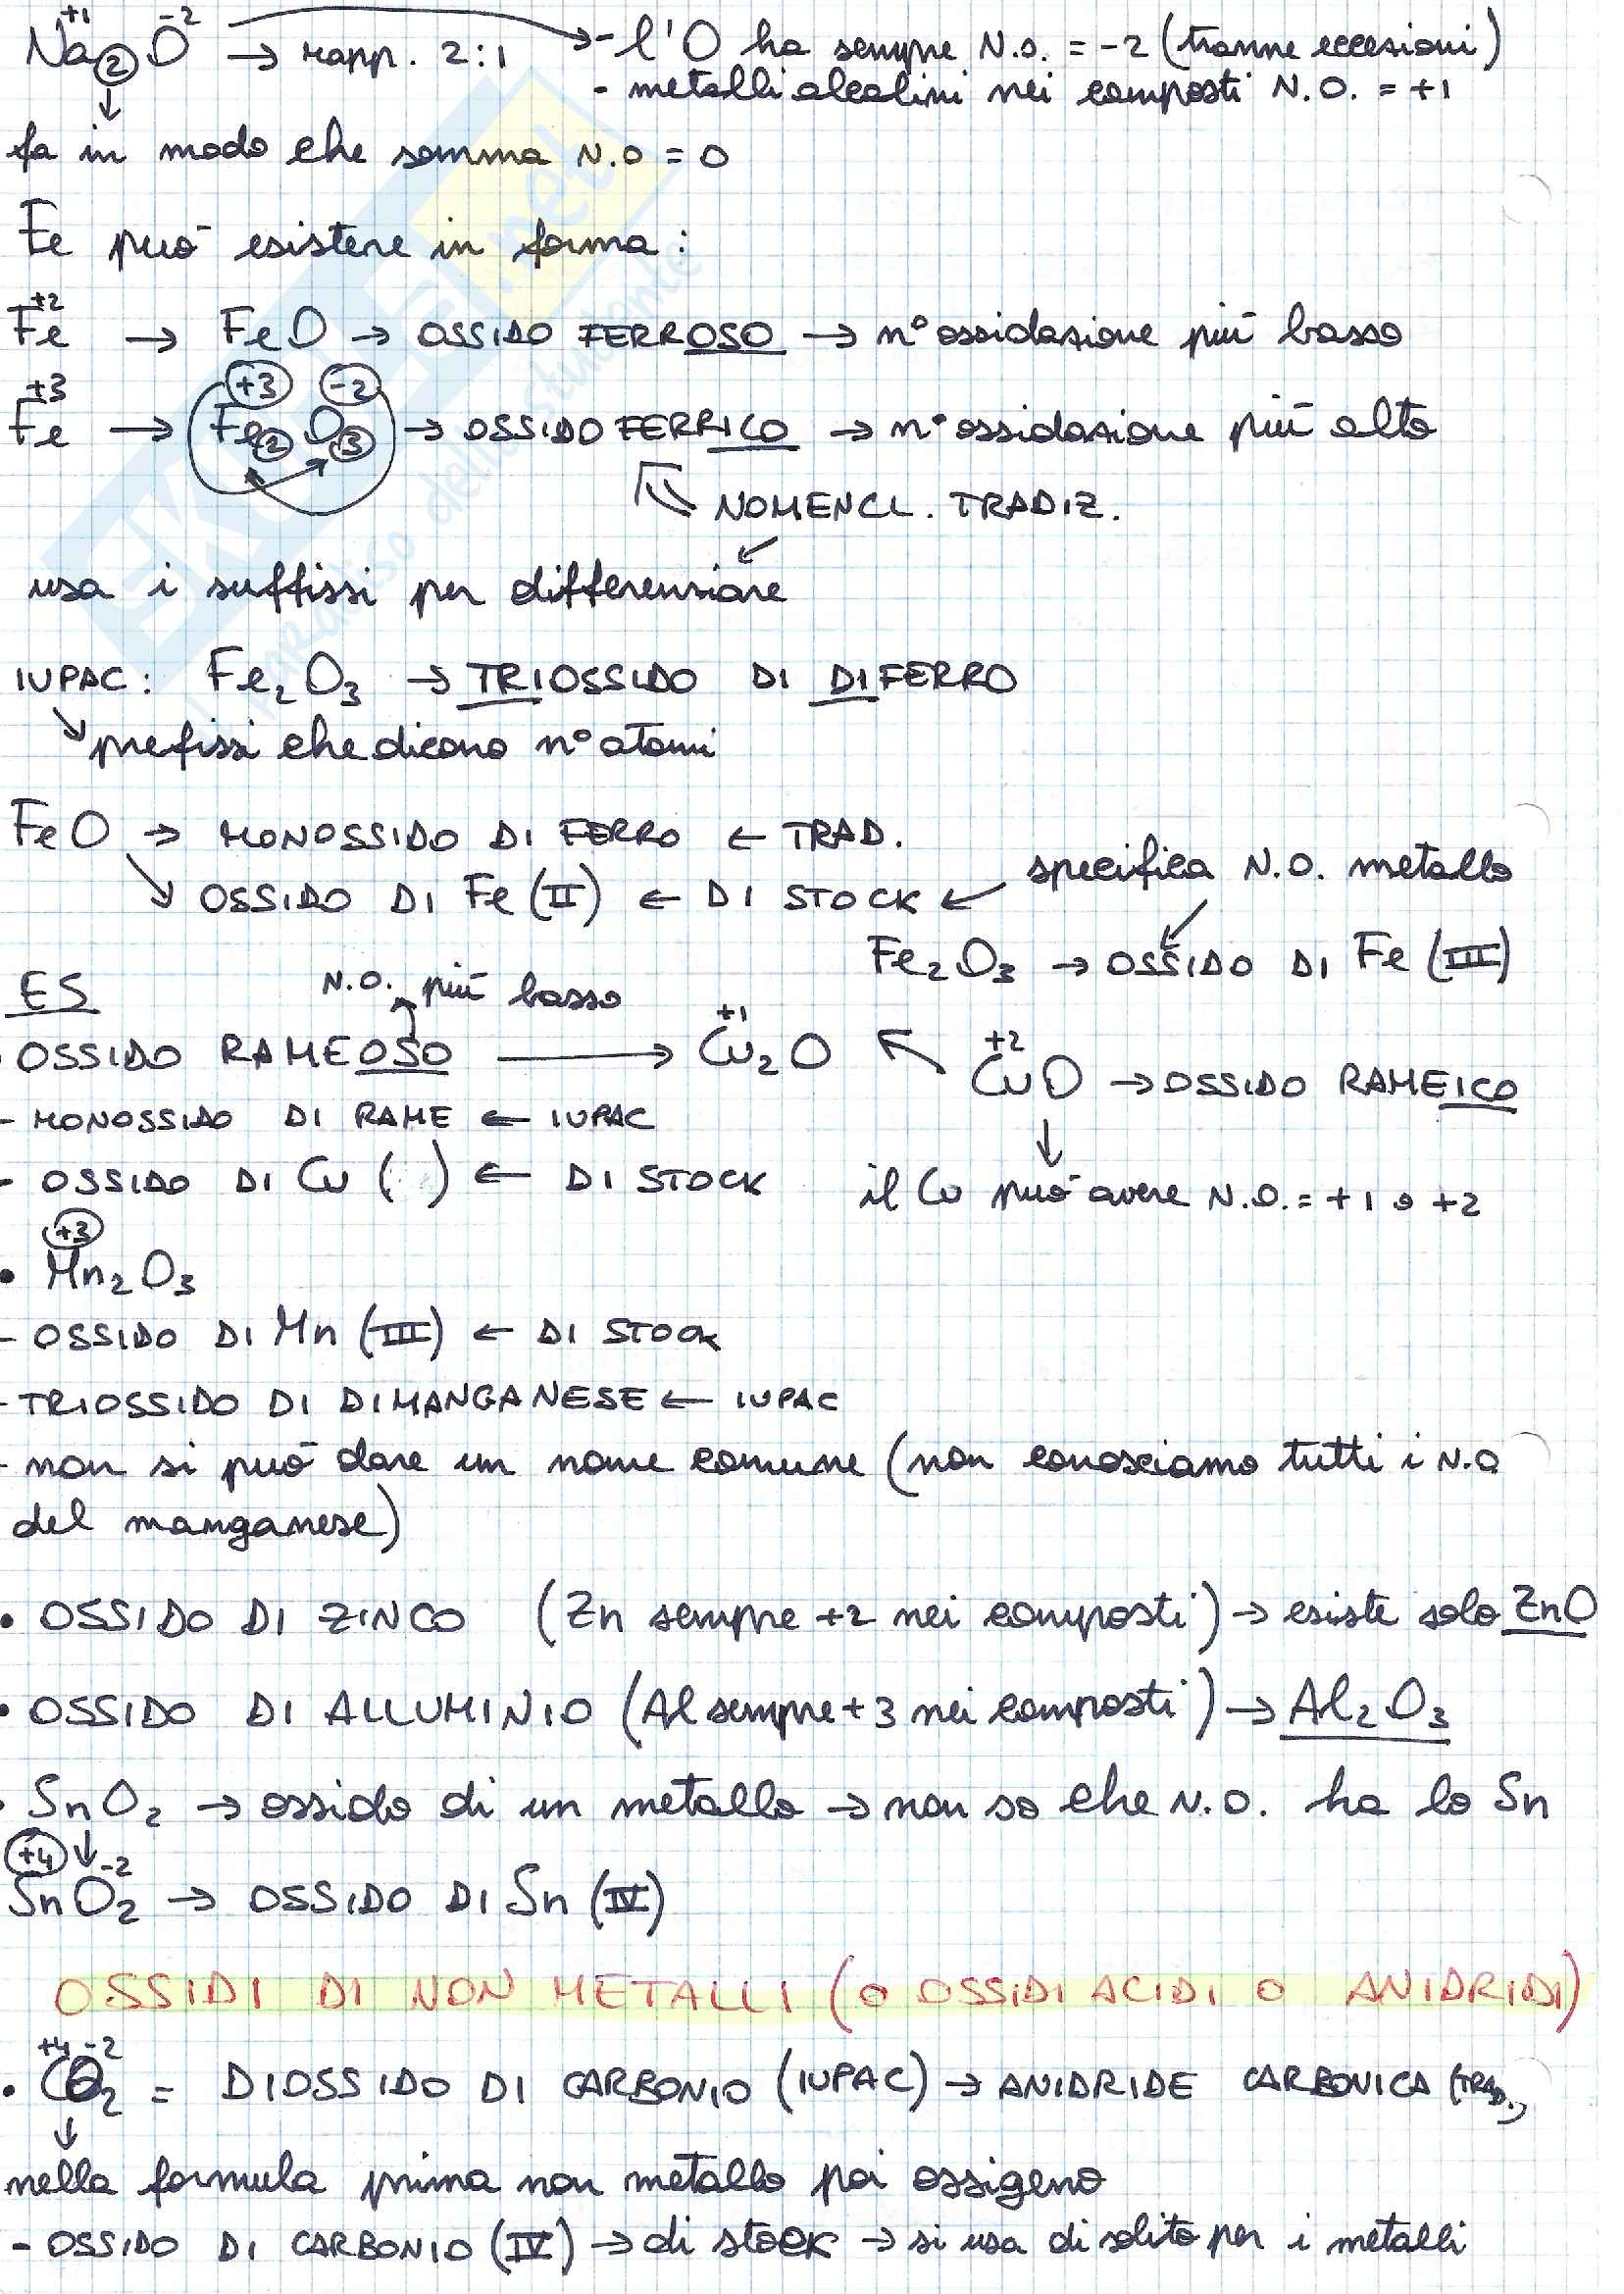 +1 -2
Na2O → rapp. 2:1 → - l'O ha sempre N.O. = -2 (tranne eccezioni)
- metalli alcalini nei composti N.O. = +1
↓
fa in modo che somma N.O = 0
Fe può esistere in forma:
+2
Fe → FeO → OSSIDO FERROSO → n° ossidazione più basso
+3 +3 -2
Fe → Fe2O3 → OSSIDO FERRICO → n° ossidazione più alto
NOMENCL. TRADIZ.
usa i suffissi per differenziare
IUPAC: Fe2O3 → TRIOSSIDO DI DIFERRO
↘ prefissi che dicono n° atomi
FeO → MONOSSIDO DI FERRO ← TRAD.
↘ OSSIDO DI Fe (II) ← DI STOCK ← specifica N.O. metallo
Fe2O3 → OSSIDO DI Fe (III)
ES
N.O. più basso
+1
OSSIDO RAMEOSO → Cu2O
+2
CuO → OSSIDO RAMEICO
- MONOSSIDO DI RAME ← IUPAC
- OSSIDO DI Cu ( ) ← DI STOCK
il Cu può avere N.O. = +1 o +2
+3
• Mn2O3
- OSSIDO DI Mn (III) ← DI STOCK
- TRIOSSIDO DI DIMANGANESE ← IUPAC
- non si può dare un nome comune (non conosciamo tutti i N.O
del manganese)
• OSSIDO DI ZINCO (Zn sempre +2 nei composti) → esiste solo ZnO
• OSSIDO DI ALLUMINIO (Al sempre +3 nei composti) → Al2O3
• SnO2 → ossido di un metallo → non so che N.O. ha lo Sn
+4 ↓ -2
SnO2 → OSSIDO DI Sn (IV)
OSSIDI DI NON METALLI (O OSSIDI ACIDI O ANIDRIDI)
+4 -2
• CO2 = DIOSSIDO DI CARBONIO (IUPAC) → ANIDRIDE CARBONICA (TRAD.)
↓
nella formula prima non metallo poi ossigeno
- OSSIDO DI CARBONIO (IV) → di stock → si usa di solito per i metalli